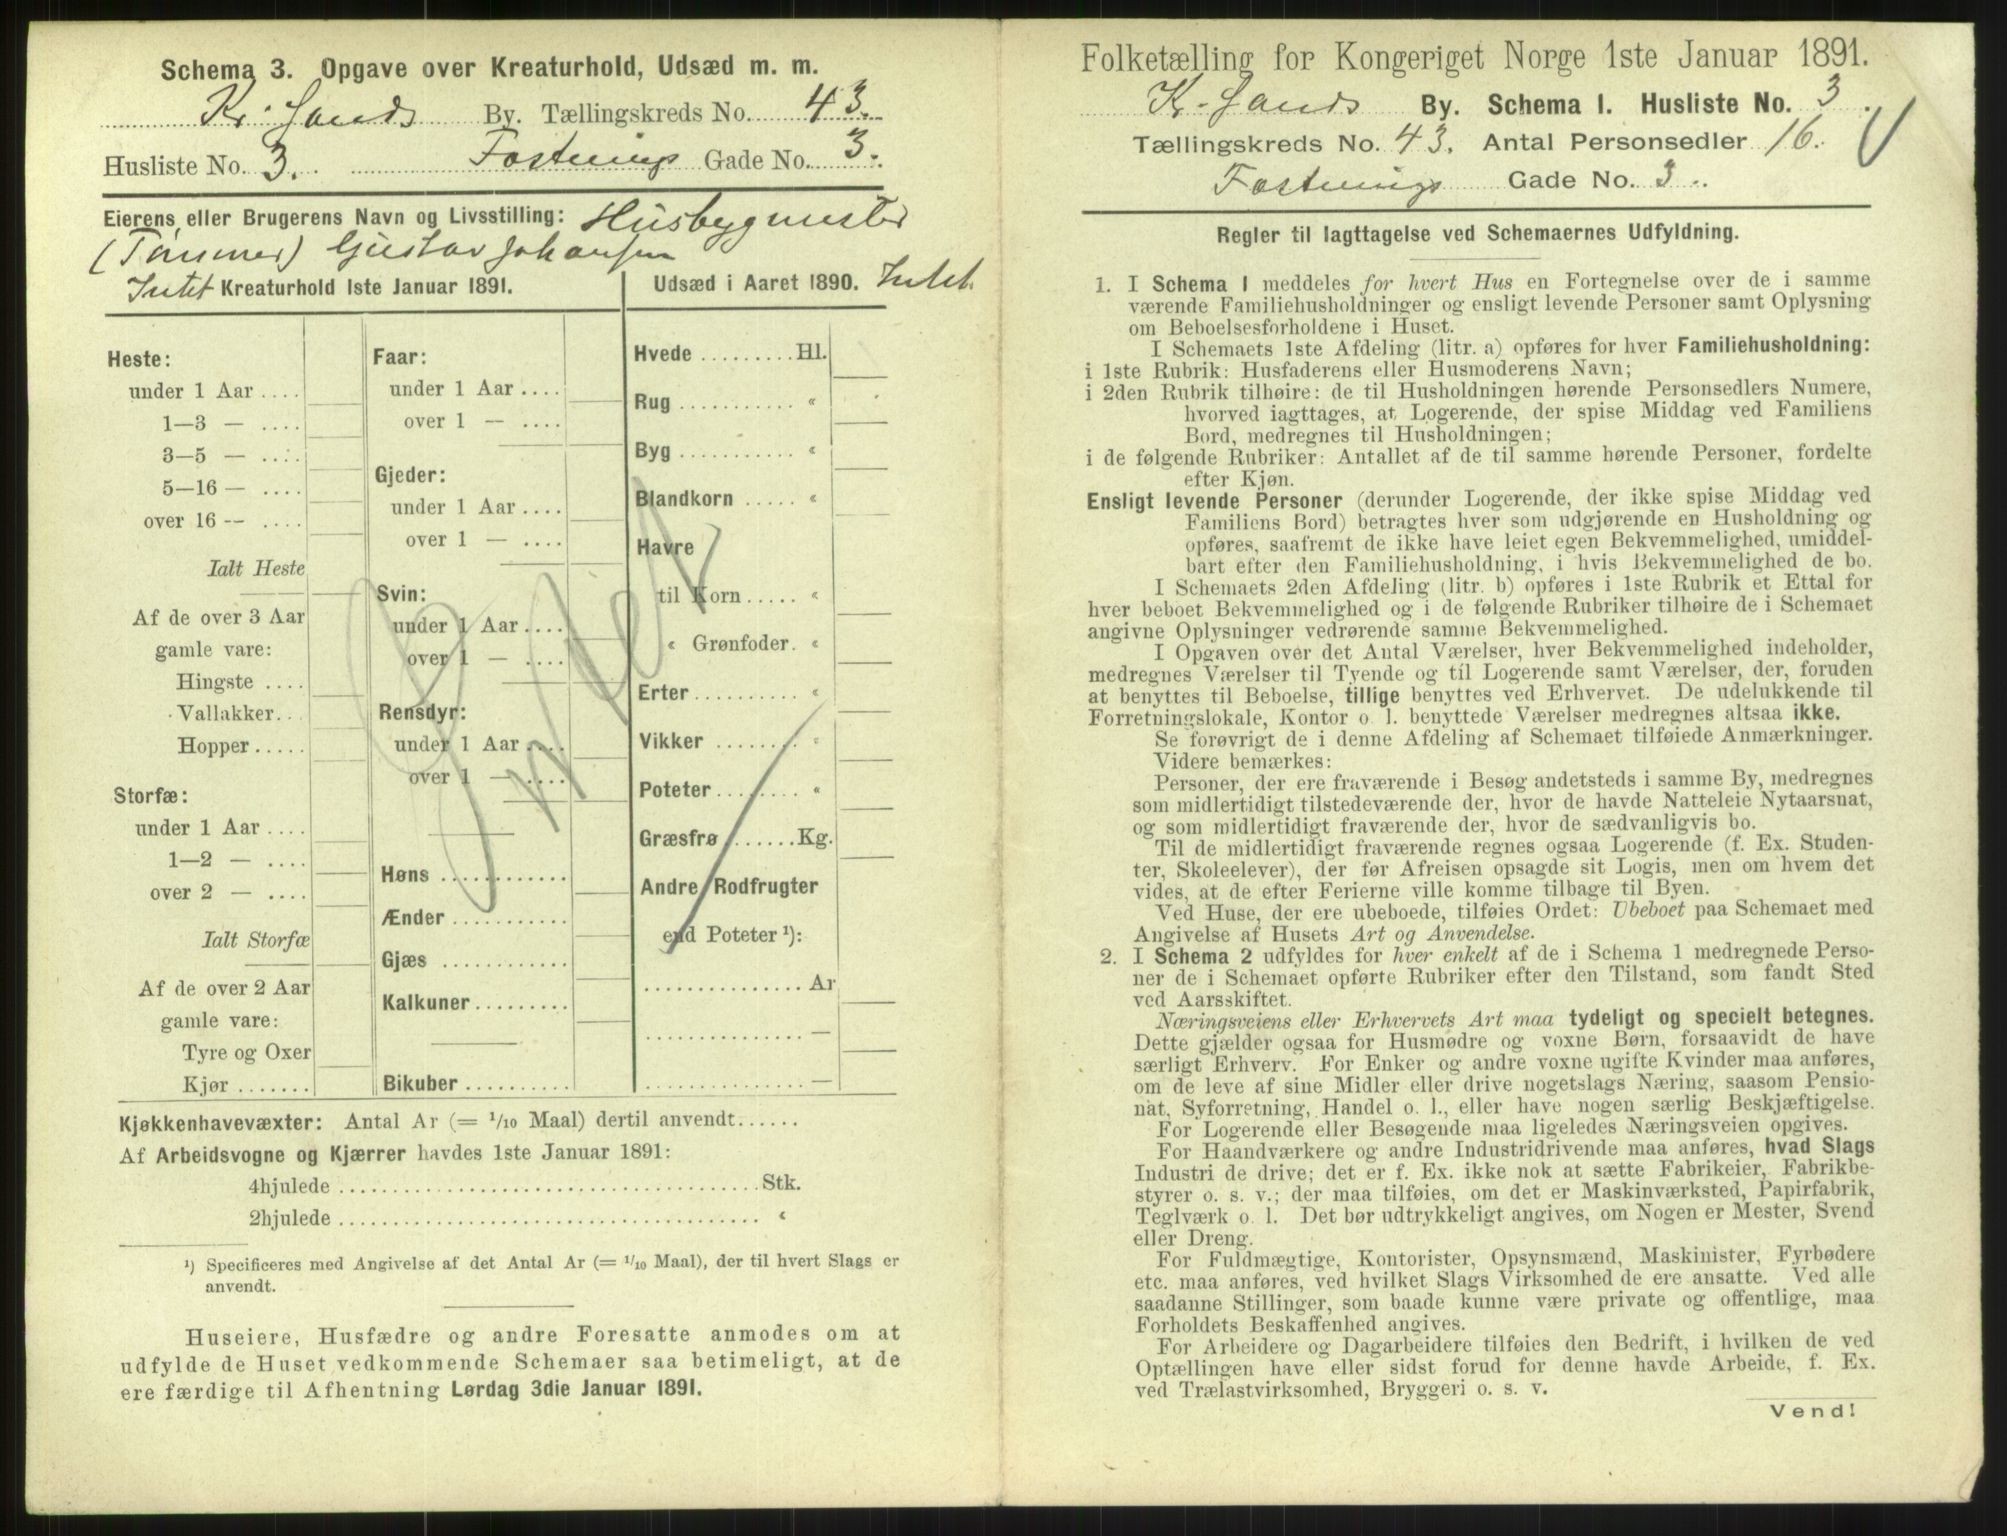 Schema 3. Opgave over Kreaturhold, Udsæd m. m.
Kr. Sands By. Tællingskreds No. 43.
Husliste No. 3. Fæstnings Gade No. 3.
Eierens eller Brugerens Navn og Livsstilling: Husbygmester
(Tømmer) Gustav Johansen
Intet Kreaturhold 1ste Januar 1891.
Udsæd i Aaret 1890. Intet.
Heste:
under 1 Aar ....
1—3 — ....
3—5 — ....
5—16 — ....
over 16 -- ....
Ialt Heste
Af de over 3 Aar
gamle vare:
Hingste ....
Vallakker...
Hopper .....
Storfæ:
under 1 Aar ....
1—2 — ....
over 2 — ....
Ialt Storfæ
Af de over 2 Aar
gamle vare:
Tyre og Oxer
Kjør .......
Faar:
under 1 Aar ....
over 1 — ....
Gjeder:
under 1 Aar ....
over 1 — ....
Svin:
under 1 Aar ....
over 1 — ....
Rensdyr:
under 1 Aar ....
over 1 — ....
Høns ............
Ænder ...........
Gjæs ............
Kalkuner .........
Bikuber ..........
Hvede ......... Hl.
Rug ........... «
Byg ........... «
Blandkorn ..... «
Havre
til Korn ..... «
« Grønfoder. «
Erter .......... «
Vikker ........ «
Poteter ........ «
Græsfrø ....... Kg.
Andre Rodfrugter
end Poteter ¹):
............... Ar
............... —
............... —
Kjøkkenhavevæxter: Antal Ar (= 1/10 Maal) dertil anvendt ......
Af Arbeidsvogne og Kjærrer havdes 1ste Januar 1891:
4hjulede ..................................... Stk.
2hjulede ..................................... «
¹) Specificeres med Angivelse af det Antal Ar (= 1/10 Maal), der til hvert Slags er
anvendt.
Huseiere, Husfædre og andre Foresatte anmodes om at
udfylde de Huset vedkommende Schemaer saa betimeligt, at de
ere færdige til Afhentning Lørdag 3die Januar 1891.
Folketælling for Kongeriget Norge 1ste Januar 1891.
Kr. Sands By. Schema I. Husliste No. 3.
Tællingskreds No. 43. Antal Personsedler 16.
Fæstnings Gade No. 3.
Regler til Iagttagelse ved Schemaernes Udfyldning.
1. I Schema I meddeles for hvert Hus en Fortegnelse over de i samme
værende Familiehusholdninger og ensligt levende Personer samt Oplysning
om Beboelsesforholdene i Huset.
I Schemaets 1ste Afdeling (litr. a) opføres for hver Familiehusholdning:
i 1ste Rubrik: Husfaderens eller Husmoderens Navn;
i 2den Rubrik tilhøire: de til Husholdningen hørende Personsedlers Numere,
hvorved iagttages, at Logerende, der spise Middag ved Familiens
Bord, medregnes til Husholdningen;
i de følgende Rubriker: Antallet af de til samme hørende Personer, fordelte
efter Kjøn.
Ensligt levende Personer (derunder Logerende, der ikke spise Middag ved
Familiens Bord) betragtes hver som udgjørende en Husholdning og
opføres, saafremt de ikke have leiet egen Bekvemmelighed, umiddel-
bart efter den Familiehusholdning, i hvis Bekvemmelighed de bo.
I Schemaets 2den Afdeling (litr. b) opføres i 1ste Rubrik et Ettal for
hver beboet Bekvemmelighed og i de følgende Rubriker tilhøire de i Schemaet
angivne Oplysninger vedrørende samme Bekvemmelighed.
I Opgaven over det Antal Værelser, hver Bekvemmelighed indeholder,
medregnes Værelser til Tyende og til Logerende samt Værelser, der, foruden
at benyttes til Beboelse, tillige benyttes ved Erhvervet. De udelukkende til
Forretningslokale, Kontor o. l. benyttede Værelser medregnes altsaa ikke.
Se forøvrigt de i denne Afdeling af Schemaet tilføiede Anmærkninger.
Videre bemærkes:
Personer, der ere fraværende i Besøg andetsteds i samme By, medregnes
som midlertidigt tilstedeværende der, hvor de havde Natteleie Nytaarsnat,
og som midlertidigt fraværende der, hvor de sædvanligvis bo.
Til de midlertidigt fraværende regnes ogsaa Logerende (f. Ex. Studen-
ter, Skoleelever), der før Afreisen opsagde sit Logis, men om hvem det
vides, at de efter Ferierne ville komme tilbage til Byen.
Ved Huse, der ere ubeboede, tilføies Ordet: Ubeboet paa Schemaet med
Angivelse af Husets Art og Anvendelse.
2. I Schema 2 udfyldes for hver enkelt af de i Schema 1 medregnede Perso-
ner de i Schemaet opførte Rubriker efter den Tilstand, som fandt Sted
ved Aarsskiftet.
Næringsveiens eller Erhvervets Art maa tydeligt og specielt betegnes.
Dette gjælder ogsaa for Husmødre og voxne Børn, forsaavidt de have
særligt Erhverv. For Enker og andre voxne ugifte Kvinder maa anføres,
om de leve af sine Midler eller drive nogetslags Næring, saasom Pensio-
nat, Syforretning, Handel o. l., eller have nogen særlig Beskjæftigelse.
For Logerende eller Besøgende maa ligeledes Næringsveien opgives.
For Haandværkere og andre Industridrivende maa anføres, hvad Slags
Industri de drive; det er f. Ex. ikke nok at sætte Fabrikeier, Fabrikbe-
styrer o. s. v.; der maa tilføies, om det er Maskinværksted, Papirfabrik,
Teglværk o. l. Det bør udtrykkeligt angives, om Nogen er Mester, Svend
eller Dreng.
For Fuldmægtige, Kontorister, Opsynsmænd, Maskinister, Fyrbødere
etc. maa anføres, ved hvilket Slags Virksomhed de ere ansatte. Ved alle
saadanne Stillinger, som baade kunne være private og offentlige, maa
Forholdets Beskaffenhed angives.
For Arbeidere og Dagarbeidere tilføies den Bedrift, i hvilken de ved
Optællingen have eller sidst forud for denne havde Arbeide, f. Ex.
ved Trælastvirksomhed, Bryggeri o. s. v.
Vend!